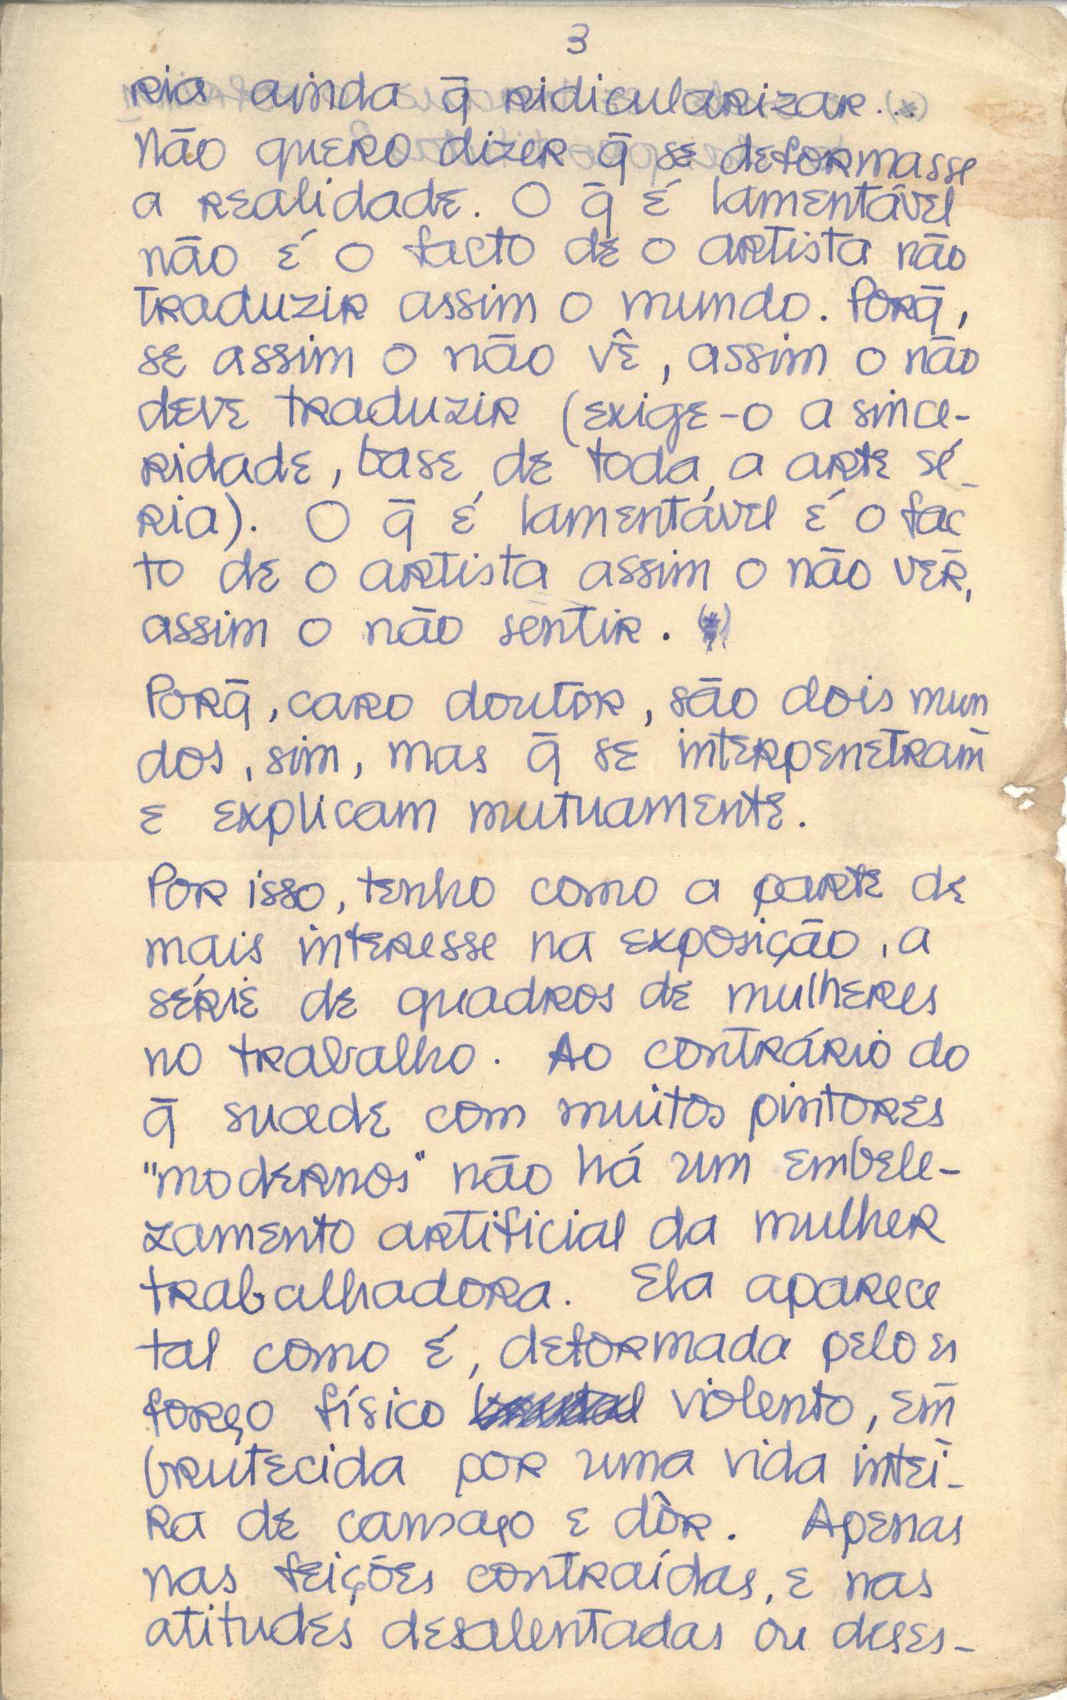 3
ria ainda q̄ ridicularizar...
Não quero dizer q̄ se deformasse
a realidade. O q̄ é lamentável
não é o facto de o artista não
traduzir assim o mundo. Porq̄,
se assim o não vê, assim o não
deve traduzir (exige-o a since-
ridade, base de toda a arte sé-
ria). O q̄ é lamentável é o fac
to de o artista assim o não ver,
assim o não sentir. (*)
Porq̄, caro doutor, são dois mun
dos, sim, mas q̄ se interpenetram
e explicam mutuamente.
Por isso, tenho como a parte de
mais interesse na exposição, a
série de quadros de mulheres
no trabalho. Ao contrário do
q̄ sucede com muitos pintores
"modernos" não há um embele-
zamento artificial da mulher
trabalhadora. Ela aparece
tal como é, deformada pelo es
forço físico violento, em
brutecida por uma vida intei-
ra de cansaço e dôr. Apenas
nas feições contraídas, e nas
atitudes desalentadas ou deses-